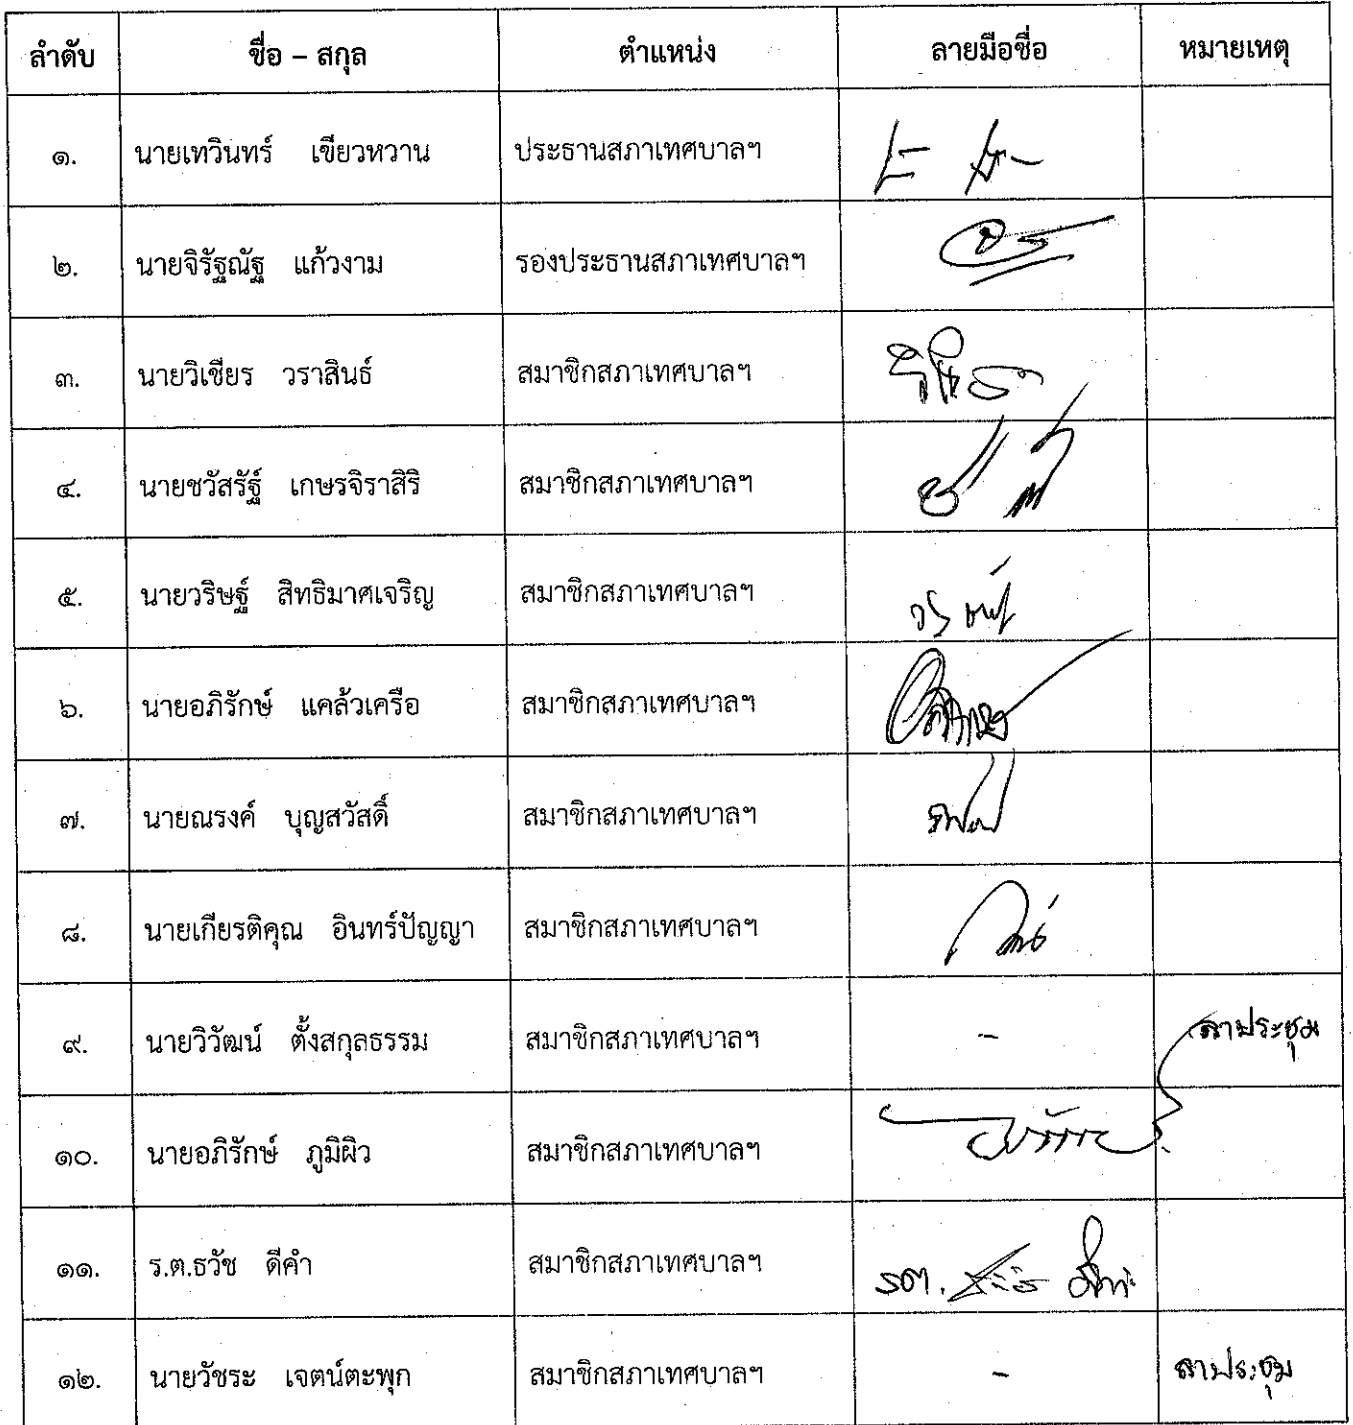 ลำดับ ชื่อ – สกุล ตำแหน่ง ลายมือชื่อ หมายเหตุ
๑. นายเทวินทร์ เขียวหวาน ประธานสภาเทศบาลฯ
๒. นายจิรัฐณัฐ แก้วงาม รองประธานสภาเทศบาลฯ
๓. นายวิเชียร วราสินธ์ สมาชิกสภาเทศบาลฯ
๔. นายชวัสรัฐ์ เกษรจิราสิริ สมาชิกสภาเทศบาลฯ
๕. นายวริษฐ์ สิทธิมาศเจริญ สมาชิกสภาเทศบาลฯ
๖. นายอภิรักษ์ แคล้วเครือ สมาชิกสภาเทศบาลฯ
๗. นายณรงค์ บุญสวัสดิ์ สมาชิกสภาเทศบาลฯ
๘. นายเกียรติคุณ อินทร์ปัญญา สมาชิกสภาเทศบาลฯ
๙. นายวิวัฒน์ ตั้งสกุลธรรม สมาชิกสภาเทศบาลฯ - ลาประชุม
๑๐. นายอภิรักษ์ ภูมิผิว สมาชิกสภาเทศบาลฯ
๑๑. ร.ต.ธวัช ดีคำ สมาชิกสภาเทศบาลฯ รต.
๑๒. นายวัชระ เจตน์ตะพุก สมาชิกสภาเทศบาลฯ - ลาประชุม